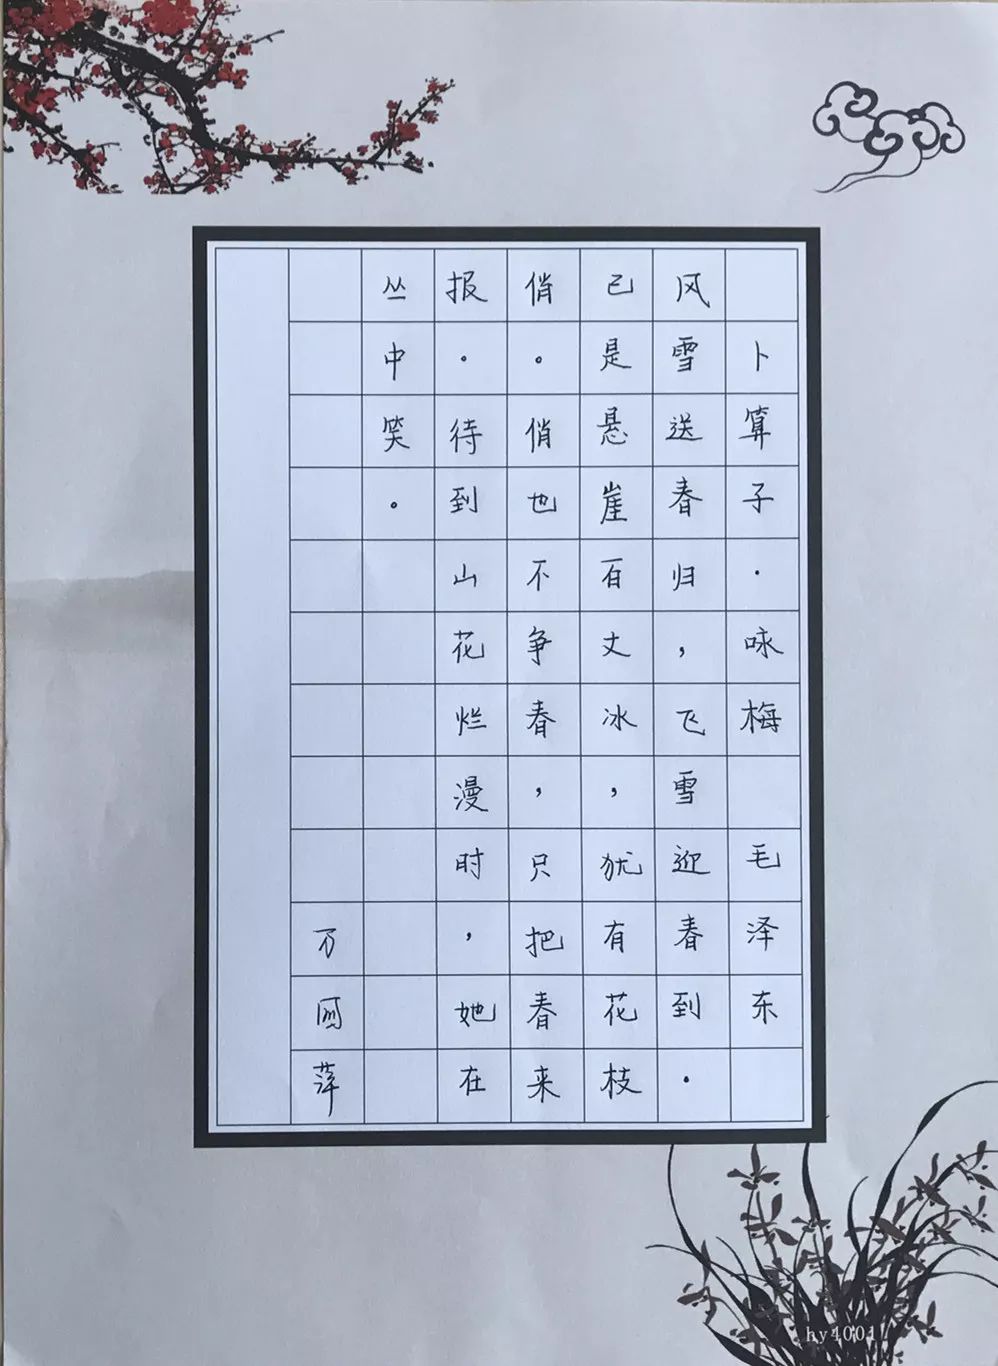 卜算子·咏梅 毛泽东
风雪送春归，飞雪迎春到.
已是悬崖百丈冰，犹有花枝
俏。俏也不争春，只把春来
报。待到山花烂漫时，她在
丛中笑。
万国萍
hy4001